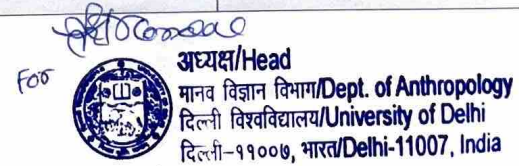 For
अध्यक्ष/Head
मानव विज्ञान विभाग/Dept. of Anthropology
दिल्ली विश्वविद्यालय/University of Delhi
दिल्ली-११००७, भारत/Delhi-11007, India